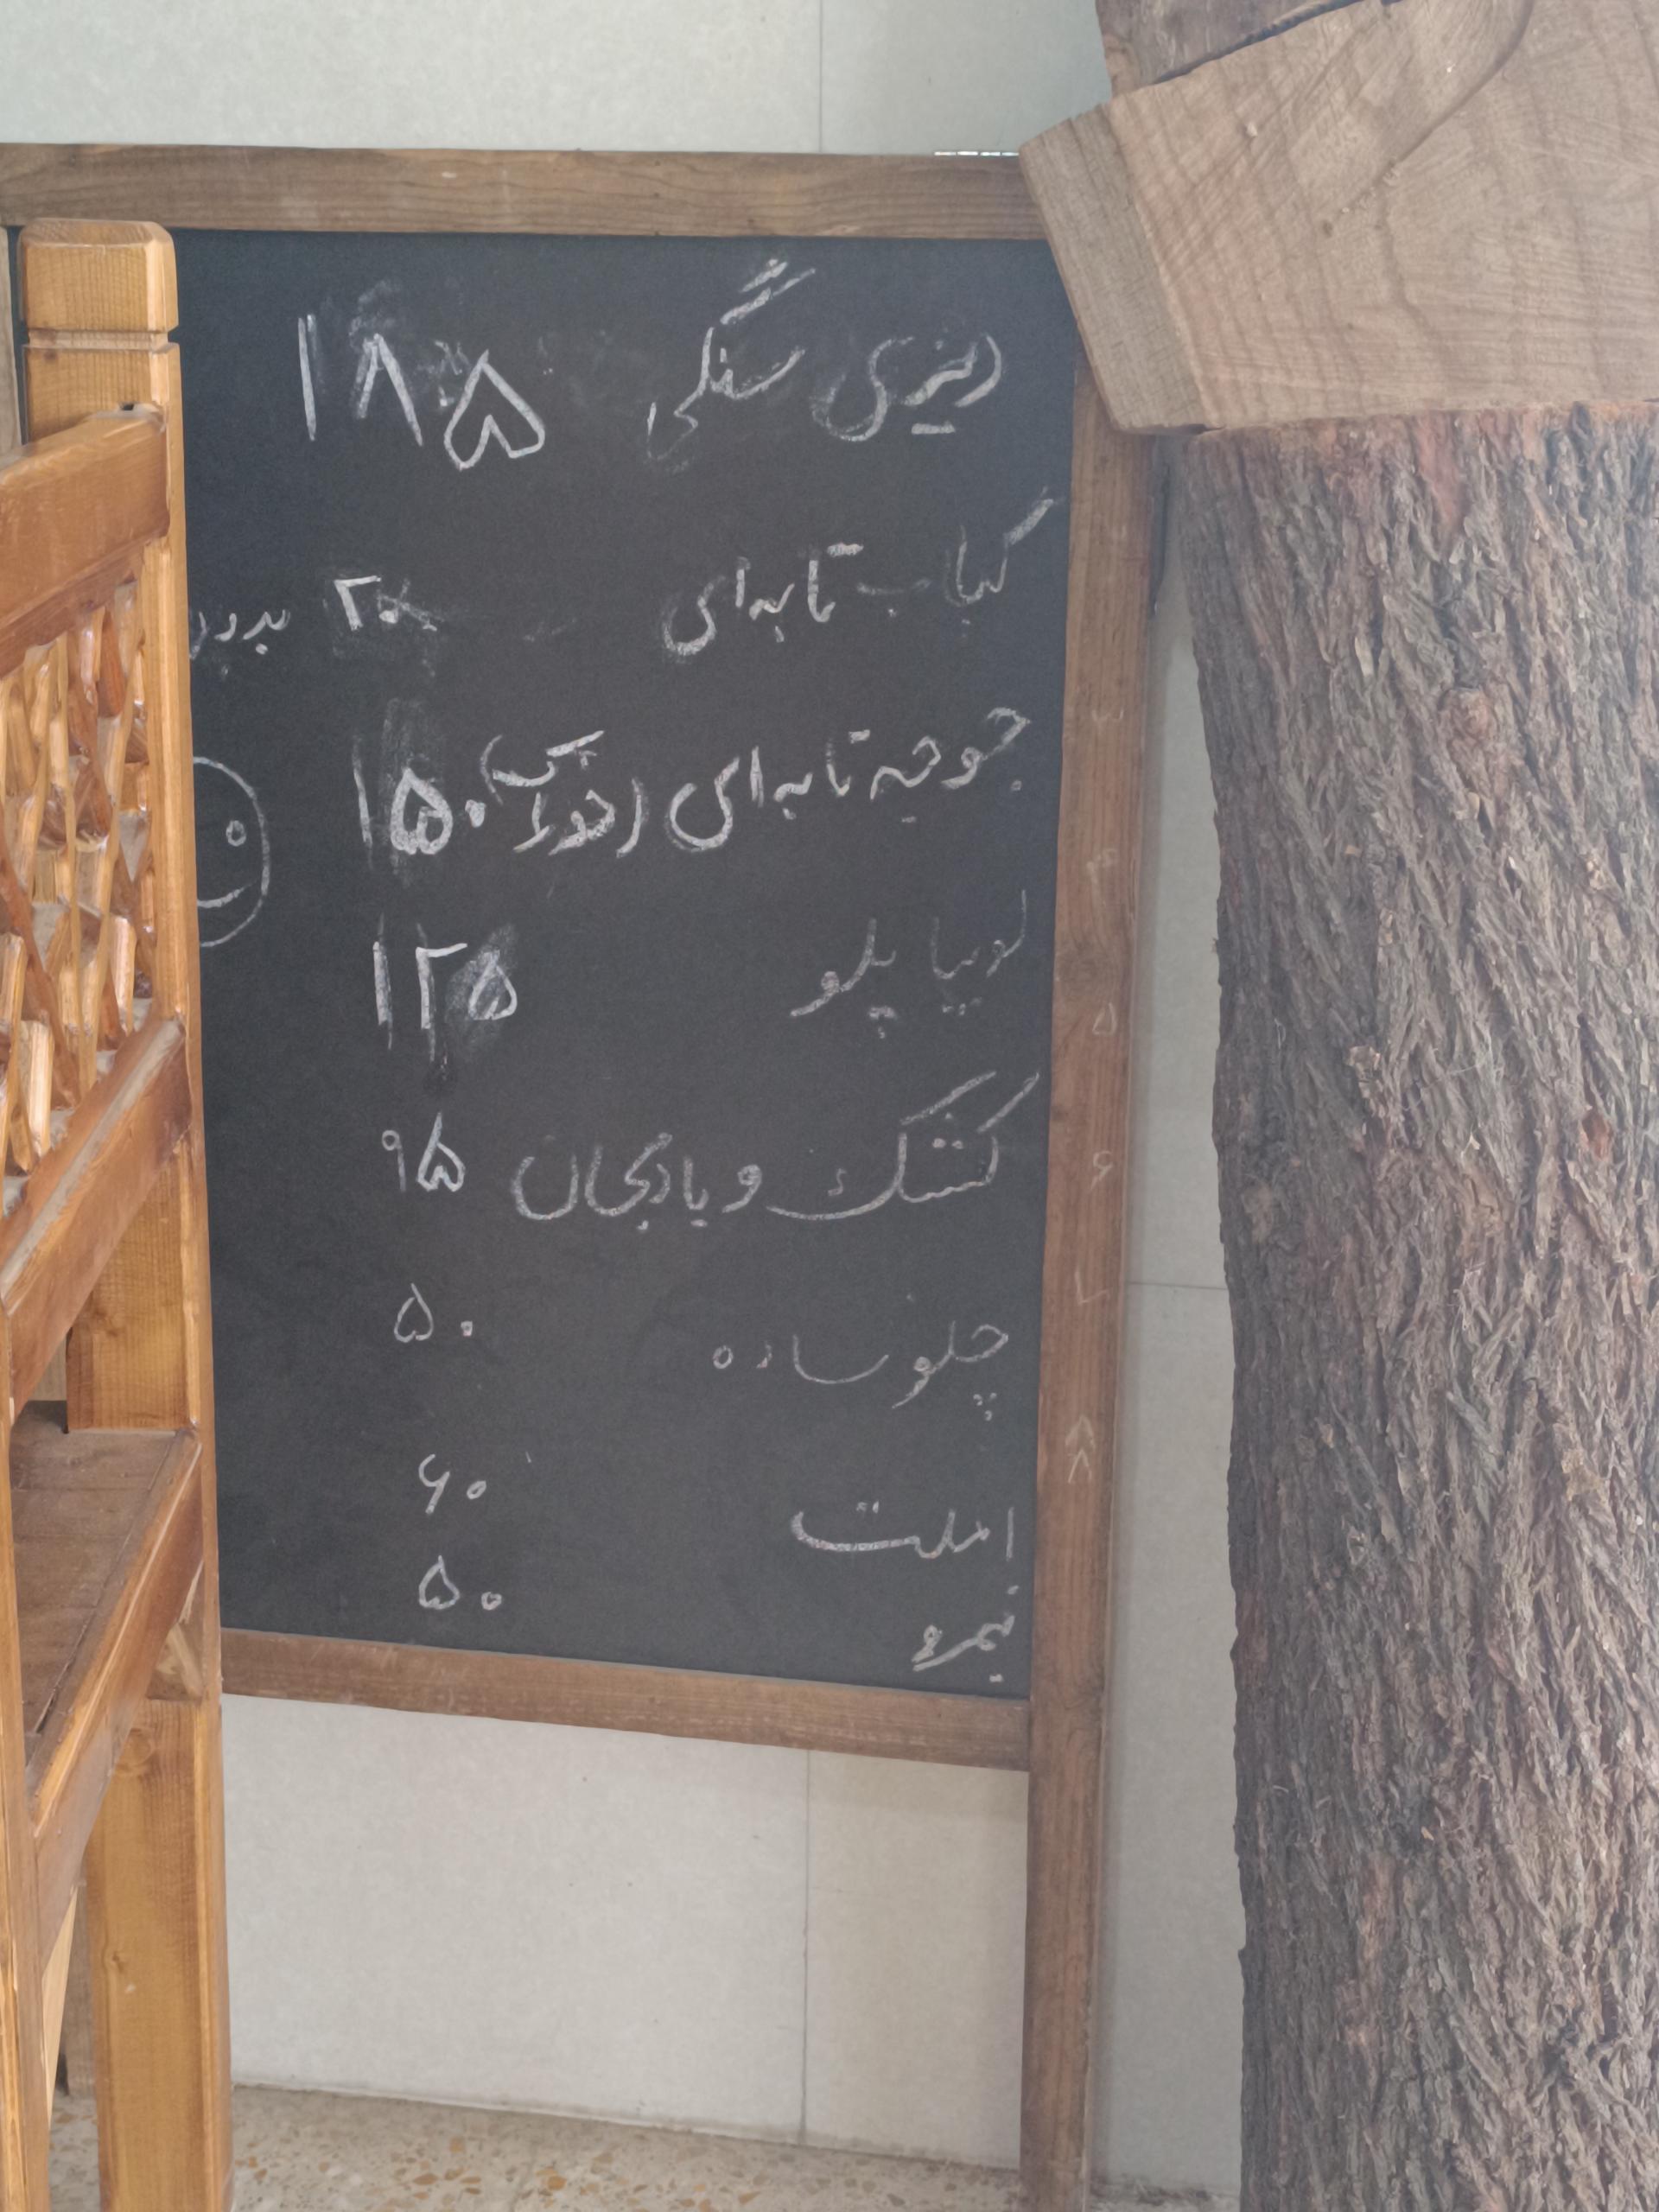 دیزی سنگی ۱۸۵
کباب تابه‌ای ۲۰۰
جوجه تابه‌ای (خوراک) ۱۵۰
لوبیا پلو ۱۲۵
کشک و بادمجان ۹۵
چلو ساده ۵۰
املت ۶۰
نیمرو ۵۰